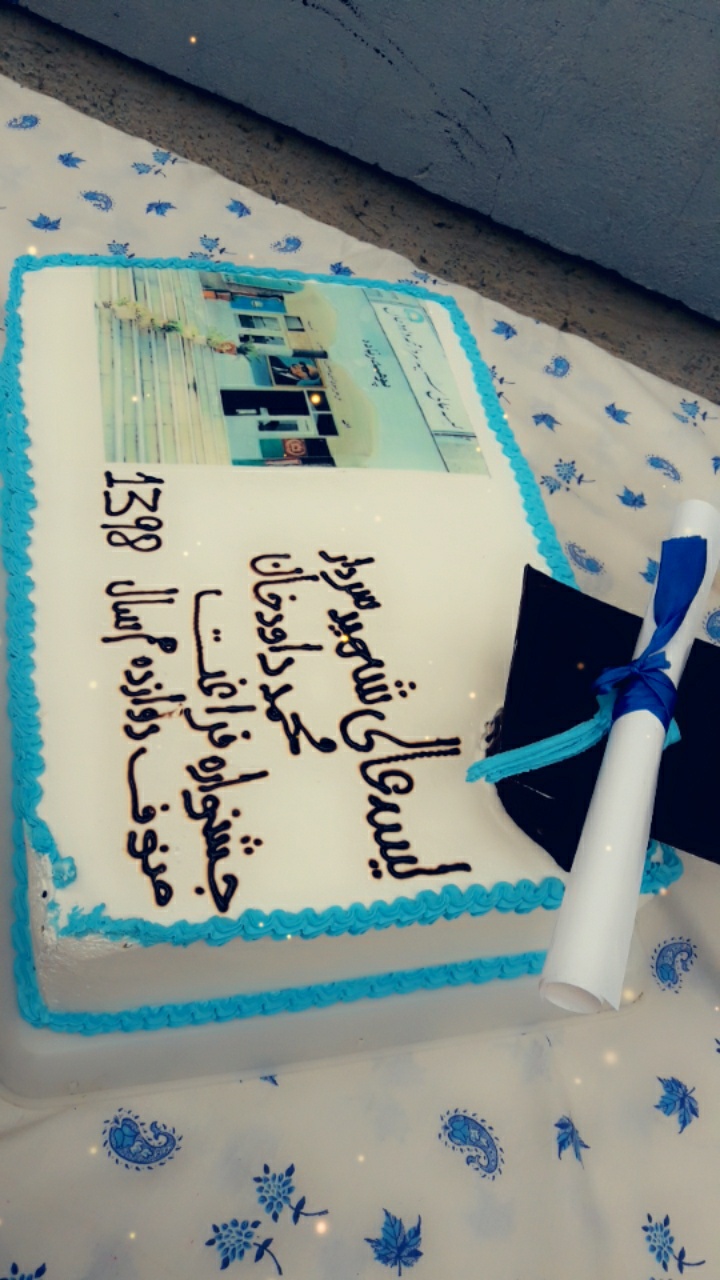 لیسه عالی شهید سردار
محمد داود خان
جشنواره فراغت
صنوف دوازدهم سال 1398